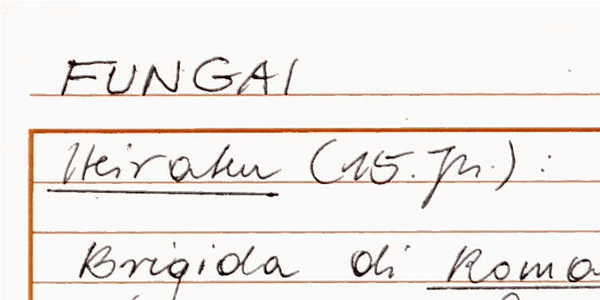 FUNGAI
Heiraten (15. Jh.) :
Brigida di Roma